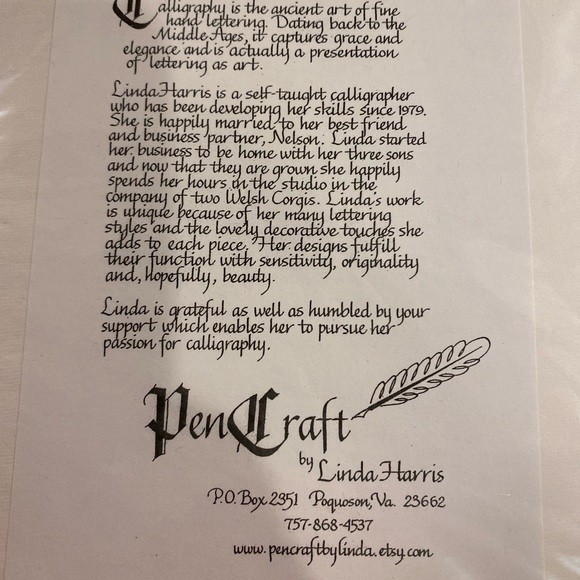 Calligraphy is the ancient art of fine
hand lettering. Dating back to the
Middle Ages, it captures grace and
elegance and is actually a presentation
of lettering as art.
Linda Harris is a self-taught calligrapher
who has been developing her skills since 1979.
She is happily married to her best friend
and business partner, Nelson. Linda started
her business to be home with her three sons
and now that they are grown she happily
spends her hours in the studio in the
company of two Welsh Corgis. Linda's work
is unique because of her many lettering
styles and the lovely decorative touches she
adds to each piece. Her designs fulfill
their function with sensitivity, originality
and, hopefully, beauty.
Linda is grateful as well as humbled by your
support which enables her to pursue her
passion for calligraphy.
PenCraft
by Linda Harris
P.O. Box 2351 Poquoson, Va. 23662
757-868-4537
www.pencraftbylinda.etsy.com